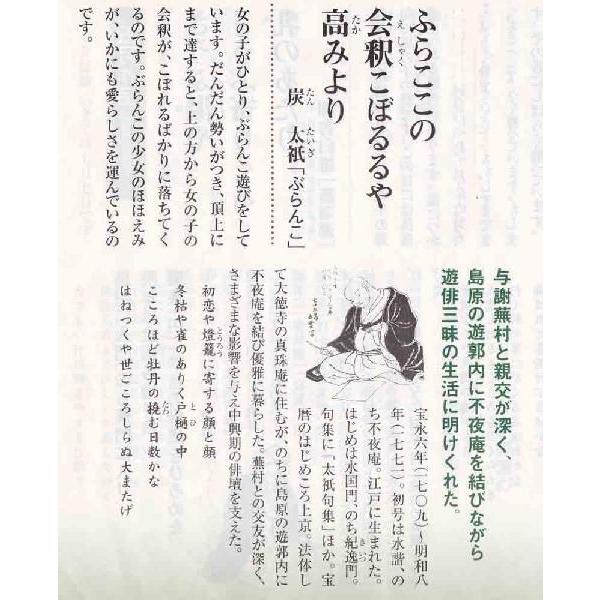 ふらここの
会釈こぼるるや
高みより
炭 太祇「ぶらんこ」
女の子がひとり、ぶらんこ遊びをして
います。だんだん勢いがつき、頂上に
まで達すると、上の方から女の子の
会釈が、こぼれるばかりに落ちてく
るのです。ぶらんこの少女のほほえみ
が、いかにも愛らしさを運んでいるの
です。
与謝蕪村と親交が深く、
島原の遊郭内に不夜庵を結びながら
遊俳三昧の生活に明けくれた。
宝永六年(一七〇九)〜明和八
年(一七七一)。初号は水語、の
ち不夜庵。江戸に生まれた。
はじめは水国門、のち紀逸門。
句集に『太祇句集』ほか。宝
暦のはじめころ上京。法体し
て大徳寺の真珠庵に住むが、のちに島原の遊郭内に
不夜庵を結び優雅に暮らした。蕪村との交友が深く、
さまざまな影響を与え中興期の俳壇を支えた。
初恋や燈籠に寄する顔と顔
冬枯や雀のありく戸樋の中
こころほど牡丹の撓む日数かな
はねつくや世ごころしらぬ大またげ